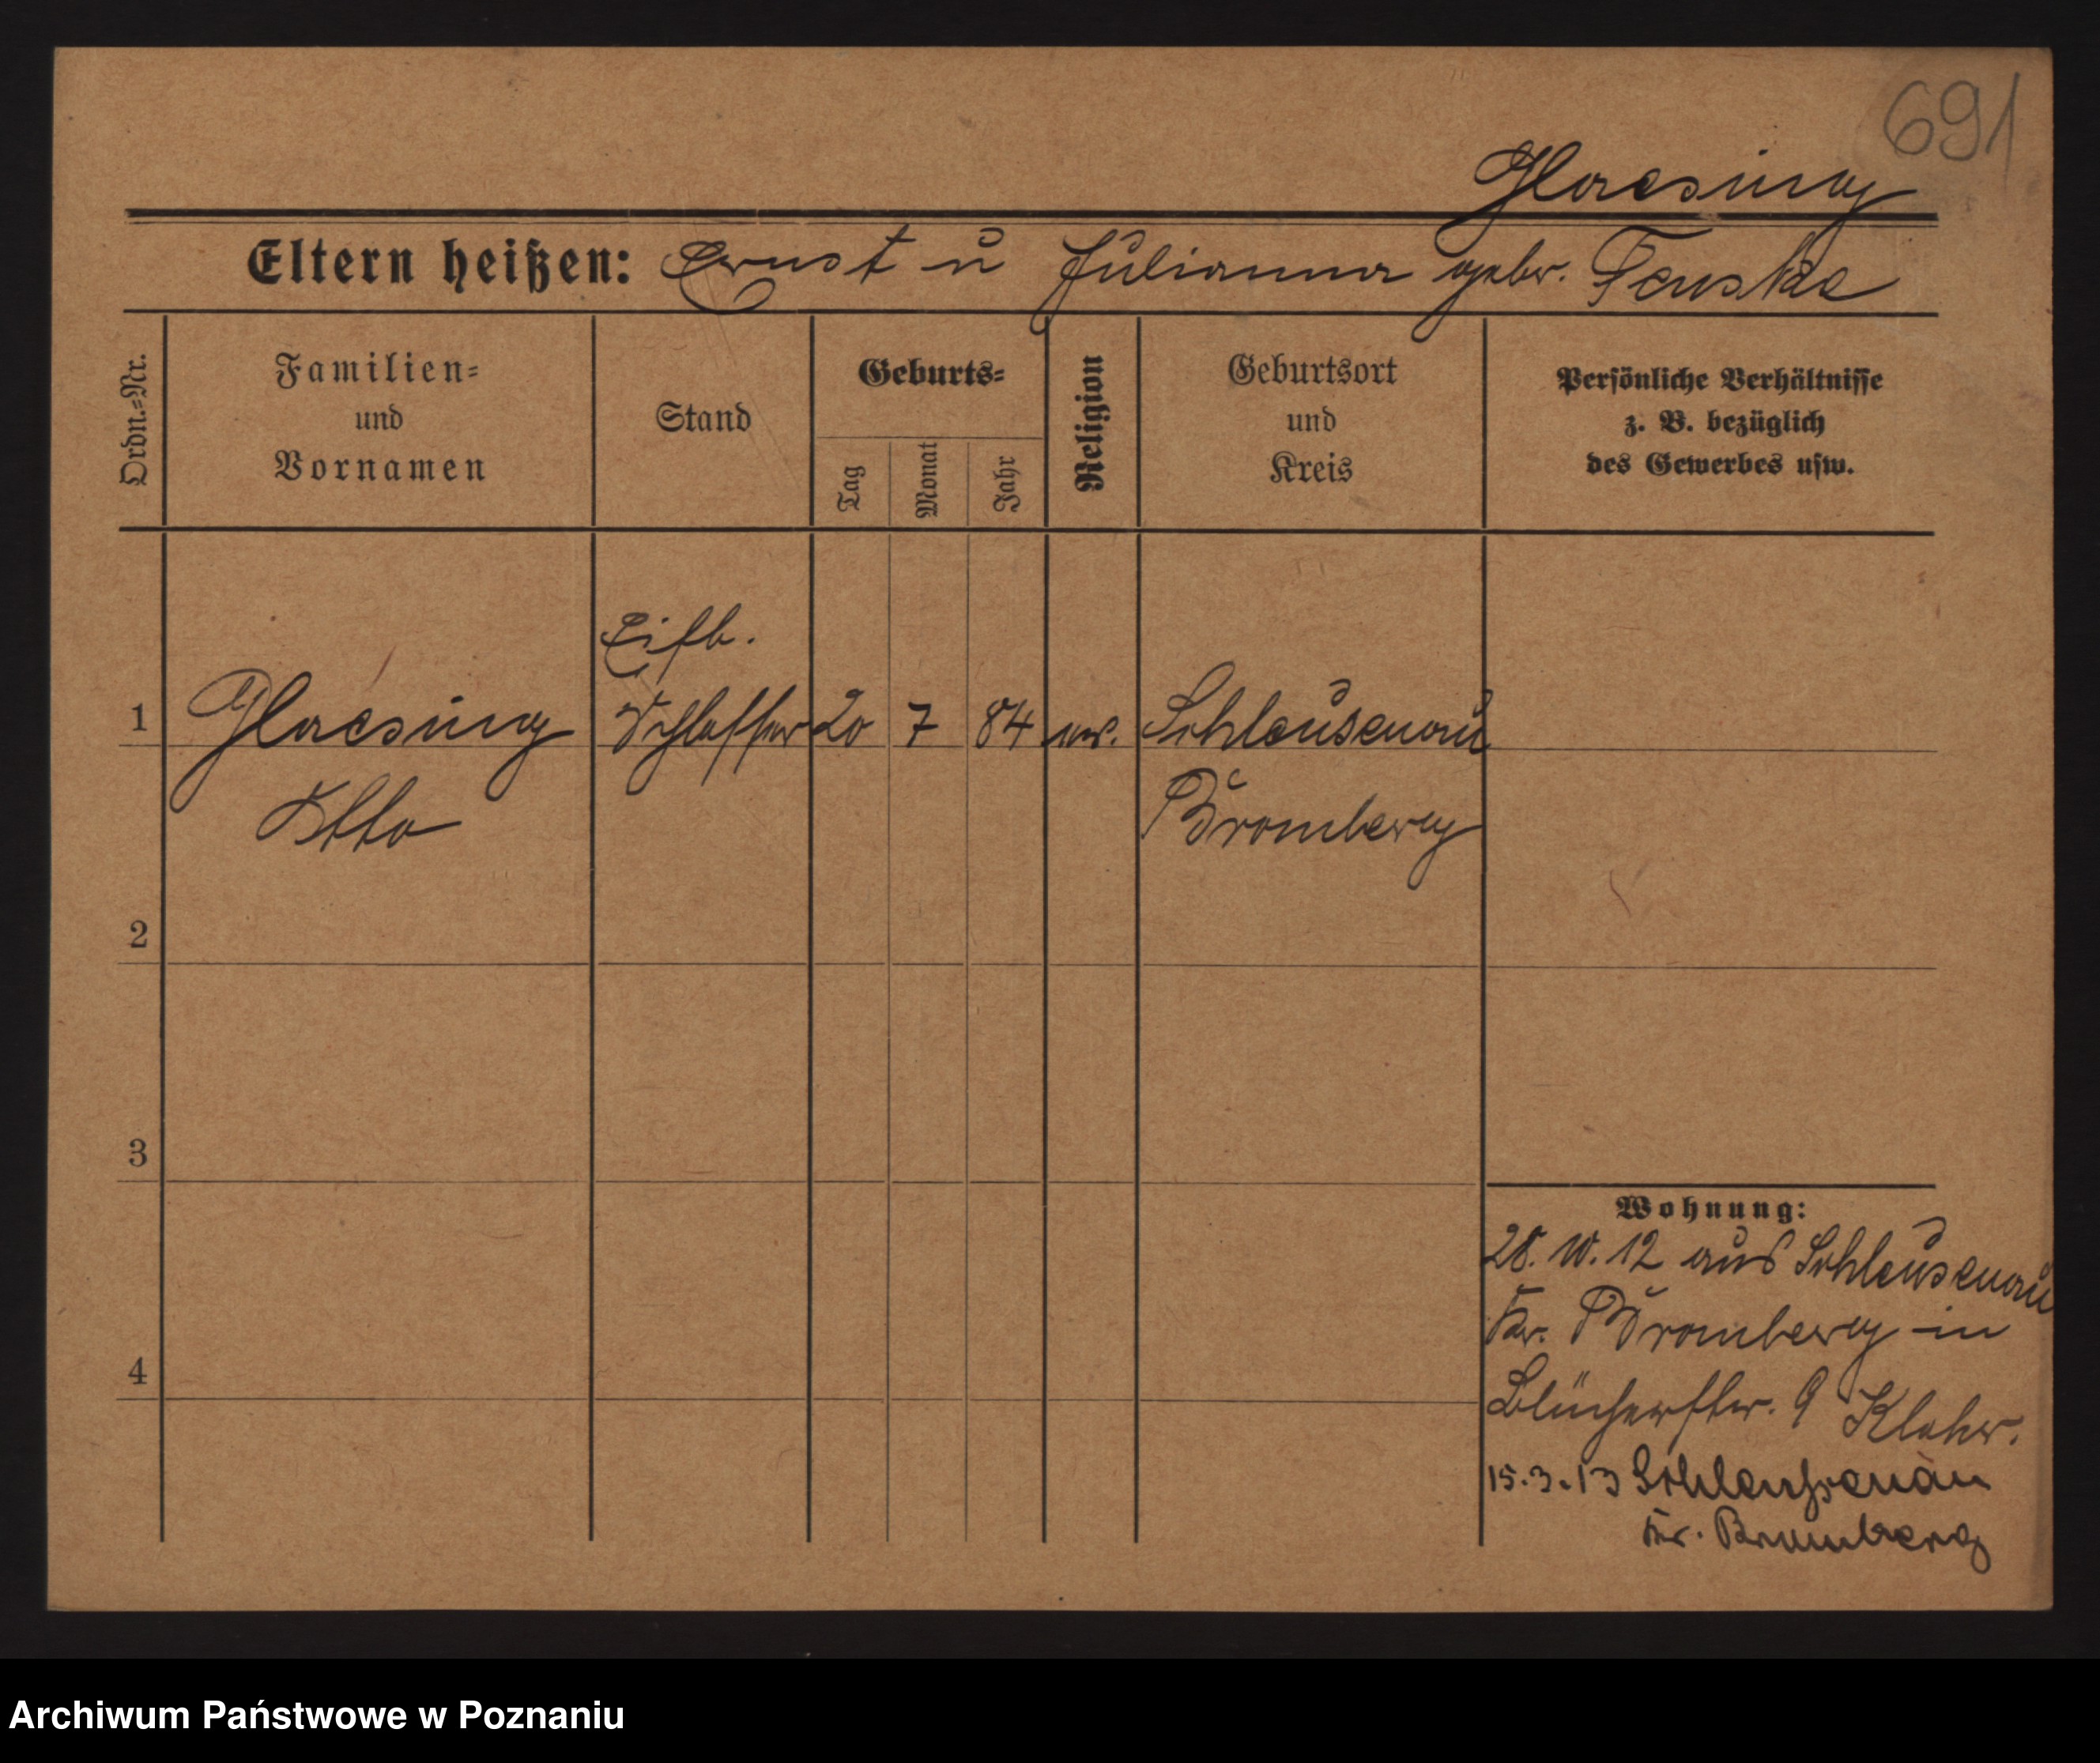 691
Glaesing
Eltern heißen: Ernst u Julianna gebr. Fenske
Ordn.-Nr.
Familien-
und
Vornamen
Stand
Geburts-
Tag
Monat
Jahr
Religion
Geburtsort
und
Kreis
Persönliche Verhältnisse
z. B. bezüglich
des Gewerbes usw.
1
Glaesing
Otto
Schlosser
20 7 84
Schleusenau
Bromberg
2
3
4
Wohnung:
28. 10. 12 aus Schleusenau
Kr. Bromberg in
Blücherstr. 9
15.3.13 Schleusenau
Kr. Bromberg
Archiwum Państwowe w Poznaniu